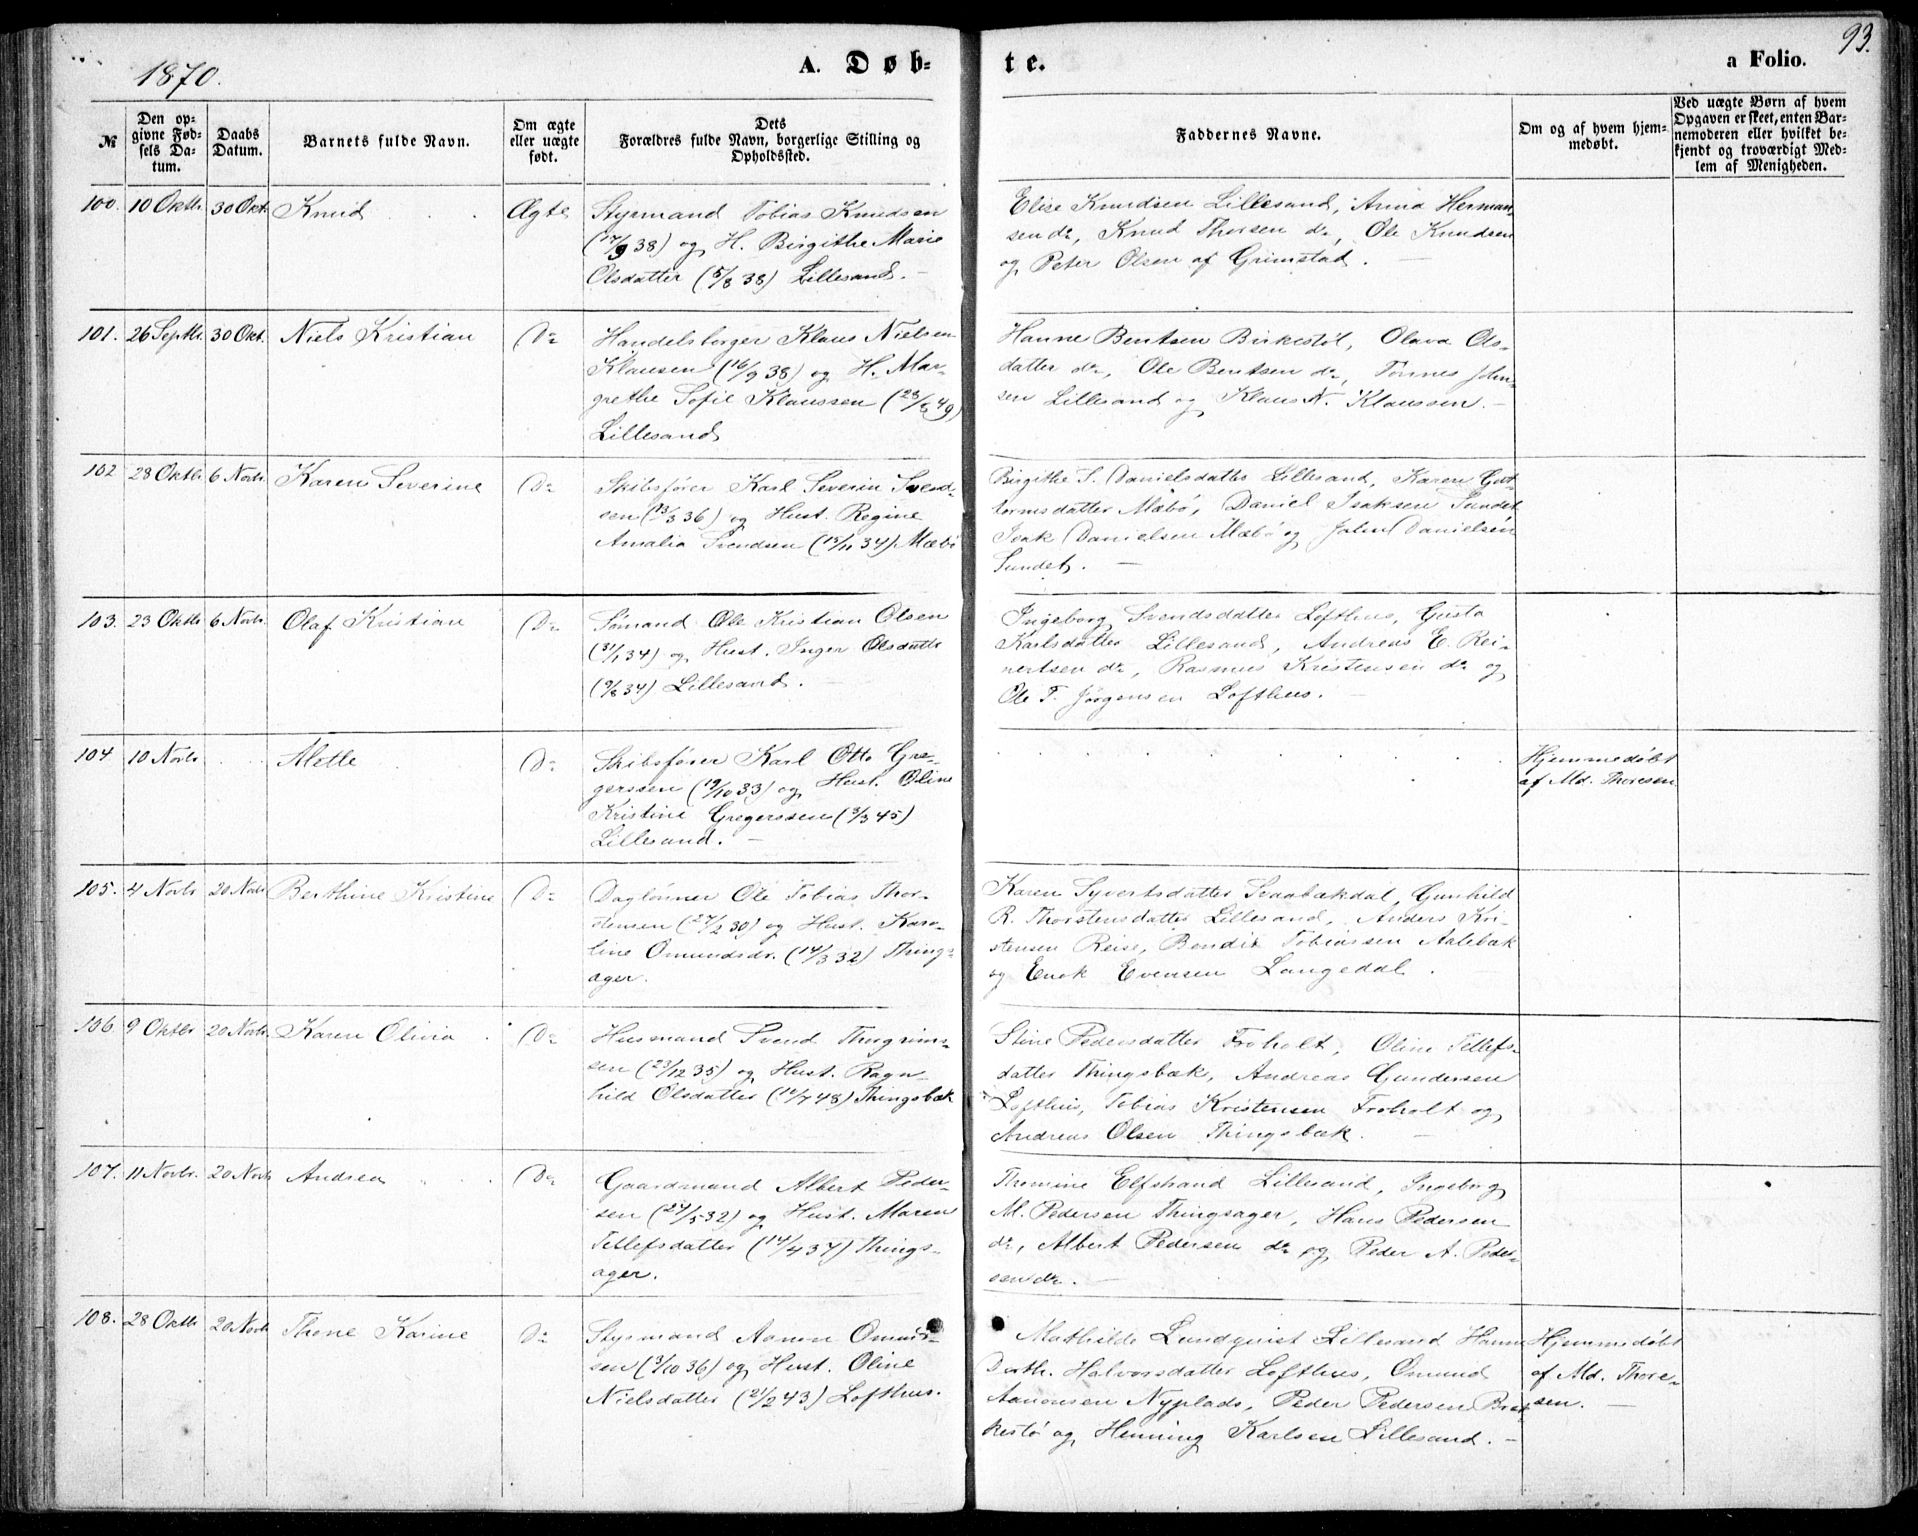 1870.
A. Døb-
te.
a Folio.
93.
№
Den op-
givne Fød-
sels Da-
tum.
Daabs
Datum.
Barnets fulde Navn.
Om ægte
eller uægte
født.
Dets
Forældres fulde Navn, borgerlige Stilling og
Opholdssted.
Faddernes Navne.
Om og af hvem hjem-
medøbt.
Ved uægte Børn af hvem
Opgaven er skeet, enten Bar-
nemoderen eller hvilket be-
kjendt og troværdigt Med-
lem af Menigheden.
100. 10 Oktbr 30 Okt. Knud Ægte
Styrmand Tobias Knudsen
(17/9 38) og H. Birgithe Marie
Olsdatter (5/8 38) Lillesand. -
Elise Knudsen Lillesand, Anna Herman-
sen do, Knud Thorsen do, Ole Knudsen
og Peter Olsen af Grimstad. -
101. 26 Septbr. 30 Okt. Niels Kristian Do
Handelsborger Klaus Nielsen
Klausen (16/9 38) og H. Mar-
grethe Sofie Klaussen (23/ 49)
Lillesand
Hanne Bentsen Birkestøl, Olava Ols-
datter do, Ole Bentsen do, Tønnes John-
sen Lillesand og Klaus N. Klaussen. -
102 28 Oktbr 6 Novbr. Karen Severine Do
Skibsfører Karl Severin Svend-
sen (13/3 36) og Hust. Regine
Amalia Svendsen (15/11 34) Mæbø
Birgithe S. Danielsdatter Lillesand, Karen Gut-
tormsdatter Mæbø, Daniel Isaksen Sundet
Isak Danielsen Mæbø og John Danielsen
Sundet. -
103. 23 Oktbr 6 Novbr. Olaf Kristian Do
Sømand Ole Kristian Olsen
(31/1 34) og Hust. Inger Olsdatter
(9/8 34) Lillesand. -
Ingeborg Svendsdatter Lofthus, Gusta
Karlsdatter Lillesand, Andreas E. Rei-
nertsen do, Rasmus Kristensen do og
Ole T. Jørgensen Lofthus. -
104 10 Novbr Mette Do
Skibsfører Karl Otto Gre-
gerssen (19/10 33) og Hust. Oline
Kristine Gregerssen (3/3 45)
Lillesand. -
Hjemmedøbt
af Md. Thoresen
105. 4 Novbr 20 Novbr Berthine Kristine Do
Daglønner Ole Tobias Thor-
stensen (27/2 30) og Hust. Karo-
line Omundsdr. (14/3 32) Things-
ager.
Karen Syvertsdatter Skaabækdal, Gunhild
R. Thorstensdatter Lillesand, Anders Kri-
stensen Reise, Bendix Tobiassen Aalebæk
og Enok Evensen Langedal.
106 9 Oktbr 20 Novbr. Karen Olivia Do
Husmand Svend Thorgrims-
sen (23/12 35) og Hust. Ragn-
hild Olsdatter (/7 48) Thingsbæk
Stine Pedersdatter Froholt, Oline Tellefs-
datter Thingsbæk, Andreas Gundersen
Lofthus, Tobias Kristensen Froholt og
Andreas Olsen Thingsbæk. -
107. 11 Novbr. 20 Novbr Andrea Do
Gaardmand Albert Peder-
sen (24/5 32) og Hust. Maren
Tellefsdatter (14/4 37) Things-
ager.
Thomine Elfstrand Lillesand, Ingeborg
M. Pedersen Thingsager, Hans Pedersen
do, Albert Pedersen do og Peder A. Peder-
sen do. -
108. 28 Oktbr 20 Novbr Thone Karine Do
Styrmand Aanon Omund-
sen (3/10 36) og Hust. Oline
Nielsdatter (21/2 43) Lofthus.
Mathilde Lundqvist Lillesand Hanne
Dorth. Halvorsdatter Lofthus, Omund
Aanonsen Nyplads, Peder Pedersen
kestø og Henning Karlsen Lillesand. -
Hjemmedøbt
af Md. Thore-
sen. -